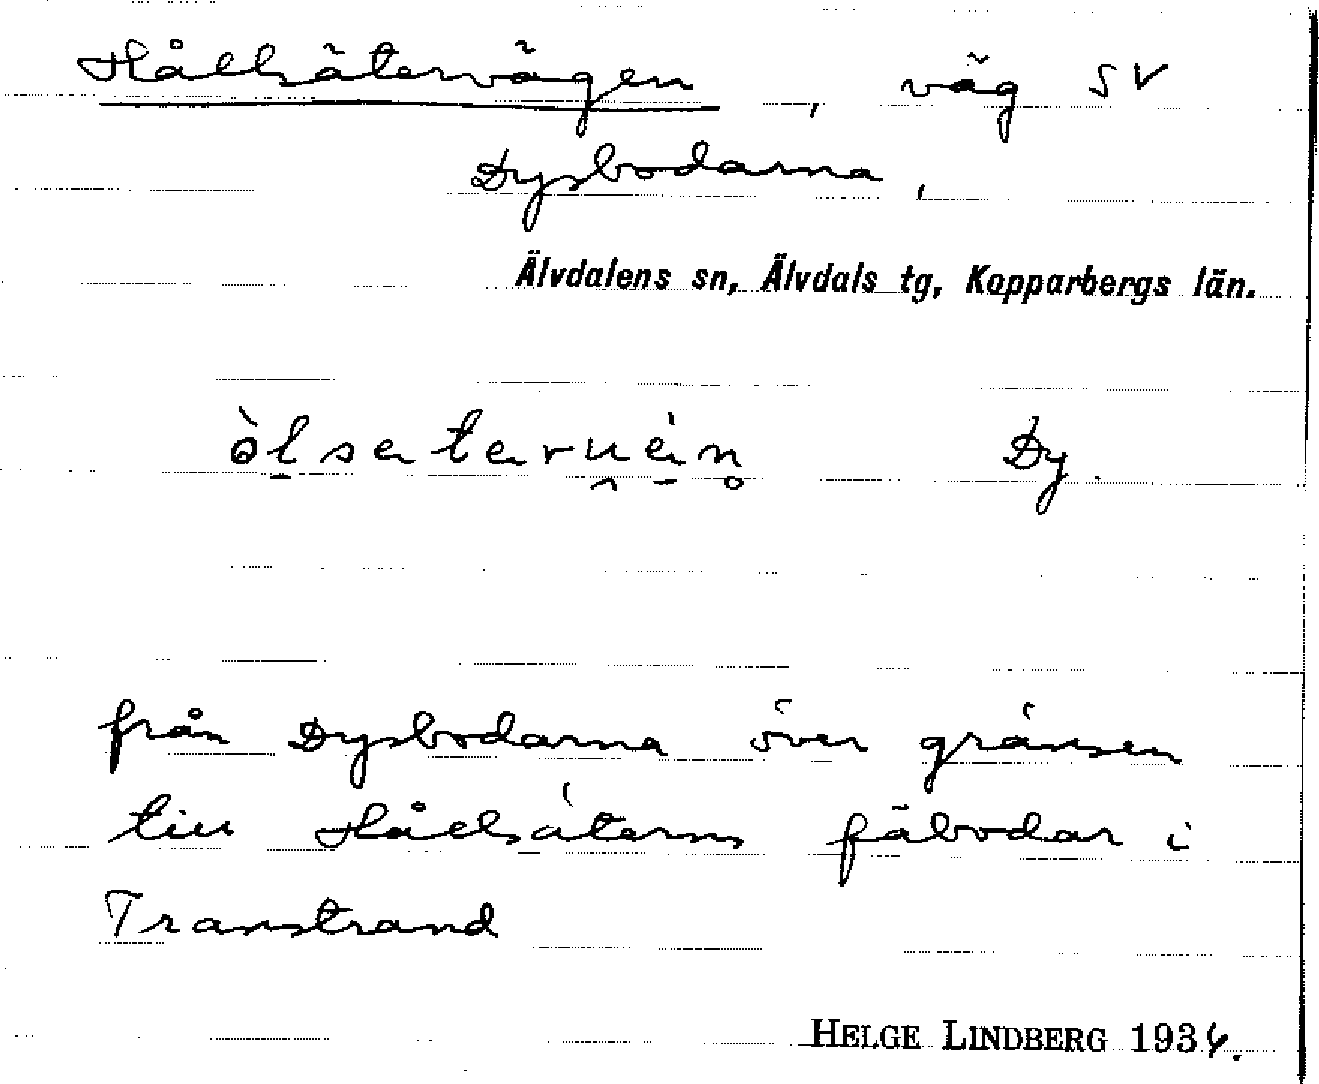 Hållsätervägen, väg SV
Dysbodarna,
Älvdalens sn, Älvdals tg, Kopparbergs län.
Dy.
från Dysbodarna över gränsen
till Hållsäterns fäbodar i
Transtrand
HELGE LINDBERG 1934.